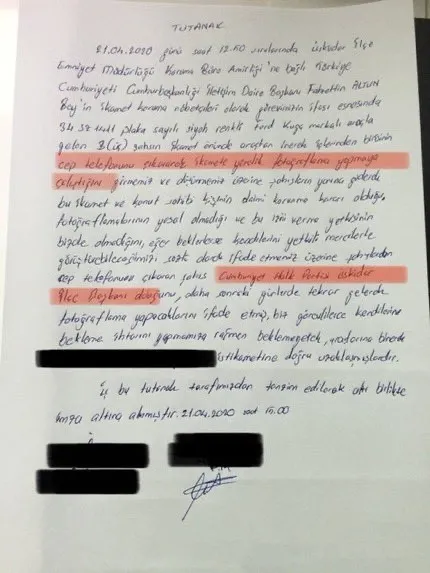 TUTANAK
21.04.2020 günü saat 12.50 sıralarında Üsküdar İlçe
Emniyet Müdürlüğü Koruma Büro Amirliği'ne bağlı Türkiye
Cumhuriyeti Cumhurbaşkanlığı İletişim Daire Başkanı Fahrettin ALTUN
Bey'in ikamet koruma nöbetçileri olarak görevimizin ifası esnasında
34 plaka sayılı siyah renkli Ford Kuga markalı araçla
gelen 3(üç) şahsın ikamet önünde araçtan inerek içlerinden birinin
cep telefonunu çıkararak ikamete yönelik fotoğraflama yapmaya
çalıştığını görmemiz ve üzerine şahısların yanına giderek
bu ikamet ve konut sahibi kişinin daimi koruma kararı olduğu,
fotoğraflamalarının yasal olmadığı ve bu izni verme yetkisinin
bizde olmadığını, eğer beklerlerse kendilerini yetkili mercilerle
görüştürebileceğimizi ifade etmemiz üzerine şahıslardan
cep telefonunu çıkaran şahıs Cumhuriyet Halk Partisi Üsküdar
İlçe Başkanı olduğunu, daha sonraki günlerde tekrar gelerek
fotoğraflama yapacaklarını ifade etmiş, biz görevlilerce kendilerine
bekleme ihtarını yapmamıza rağmen beklemeyerek, araçlarına binerek
istikametine doğru uzaklaşmışlardır.
İş bu tutanak tarafımızdan tanzim edilerek birlikte
imza altına alınmıştır. 21.04.2020 saat 15.00